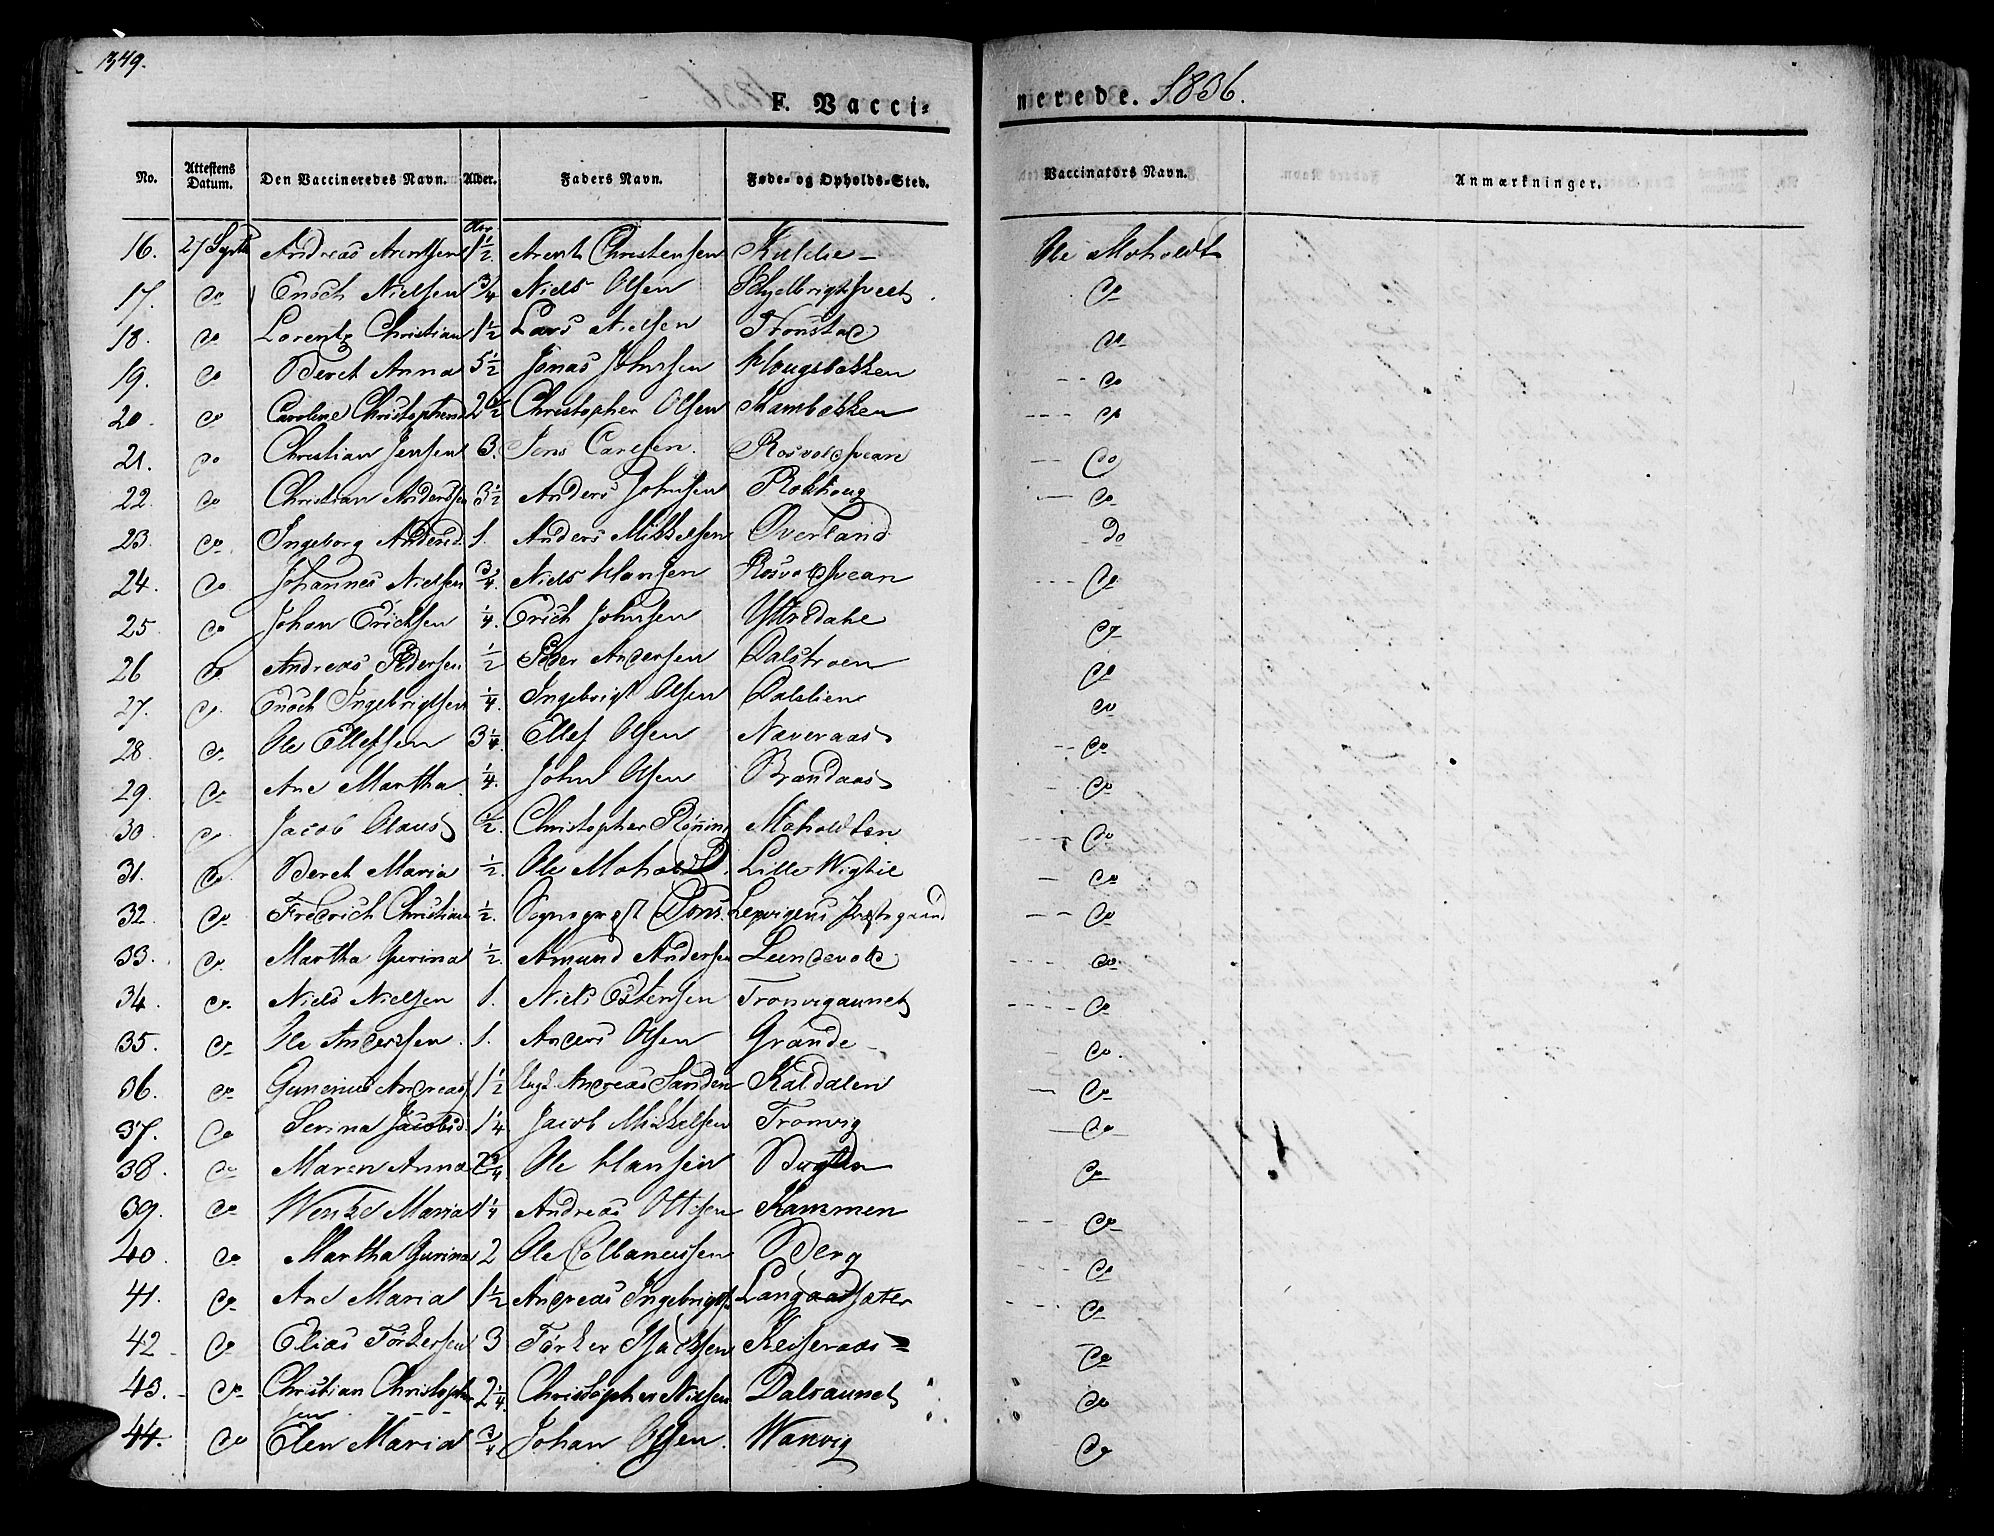 349.
F. Vacci-
nerede. 1836.
No. Attestens Datum. Den Vaccineredes Navn. Alder. Faders Navn. Føde- og Opholds-Sted. Vaccinators Navn. Anmærkninger.
16. 27 Septb Andreas Arentsen 1½ Arent Christensen Kulslie Ole Moholdt
17. do Enoch Nielsen ¾ Niels Olsen do
18. do Lorentz Christian 1½ Lars Nielsen Tronstad do
19. do Beret Anna 5½ Jonas Johnsen Hougsbakken do
20. do Caroline Christophersd 2½ Christopher Olsen Kambakken do
21. do Christian Jensen 3. Jens Carlsen. Rosvoldsvean do
22. do Christian Anderssen 3½ Anders Johnsen Rokhoug do
23. do Ingeborg Andersd. 1. Anders Mikkelsen Overland Do
24. do Johannes Nielsen ¾. Niels Hansen Rosvoldsvean do
25. do Johan Erichsen ¼. Erich Johnsen Yttredahl do
26 do Andreas Pedersen ½ Peder Andersen Dalstroen do
27. do Enoch Ingebrigtsen ¼. Ingebrigt Olsen Dalslien do
28 do Ole Ellefsen 3¼. Ellef Olsen Næveraas do
29. do Ane Martha ¼. John Olsen Brandaas do
30. do Jacob Olaus ½. Christopher Rønning Moholdten do
31. do Beret Maria ½. Ole Moholdt. Lille Wigtil do
32. do Fredrich Christian ½. Sogneprest Dons. Lexvigens Præstegaard do
33. do Martha Gurina ½. Amund Andersen Lundevold do
34. do Niels Nielsen 1. Niels Østensen Tronvigaunet do
35. do Ole Anderssen. 1. Anders Olsen Grande do.
36. do Gunerius Andreas 1½ Andreas Sanden Kaldalen do
37. do Serina Jacobsd. 1¼ Jacob Mikkelsen Tronvig do
38. do Maren Anna Ole Hansen do
39. do Wenke Maria 1¼ Andreas Ottesen Kammen do
40. do Martha Gurina 2 Ole Colbanussen Berg do
41. do Ane Maria 1½ Andreas Ingebrigts. Langaassæter do
42 do Elias Torkersen 3 Torker Isacksen Keiseraas do
43. do Christian Christophersen 2¼. Christopher Nielsen Dalsaunet do
44. do Elen Maria ¾ Johan Olsen. Wanvig do